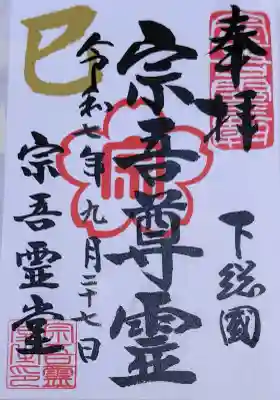 奉拝
下総國
宗吾尊霊
令和七年九月二十七日
宗吾霊堂
巳